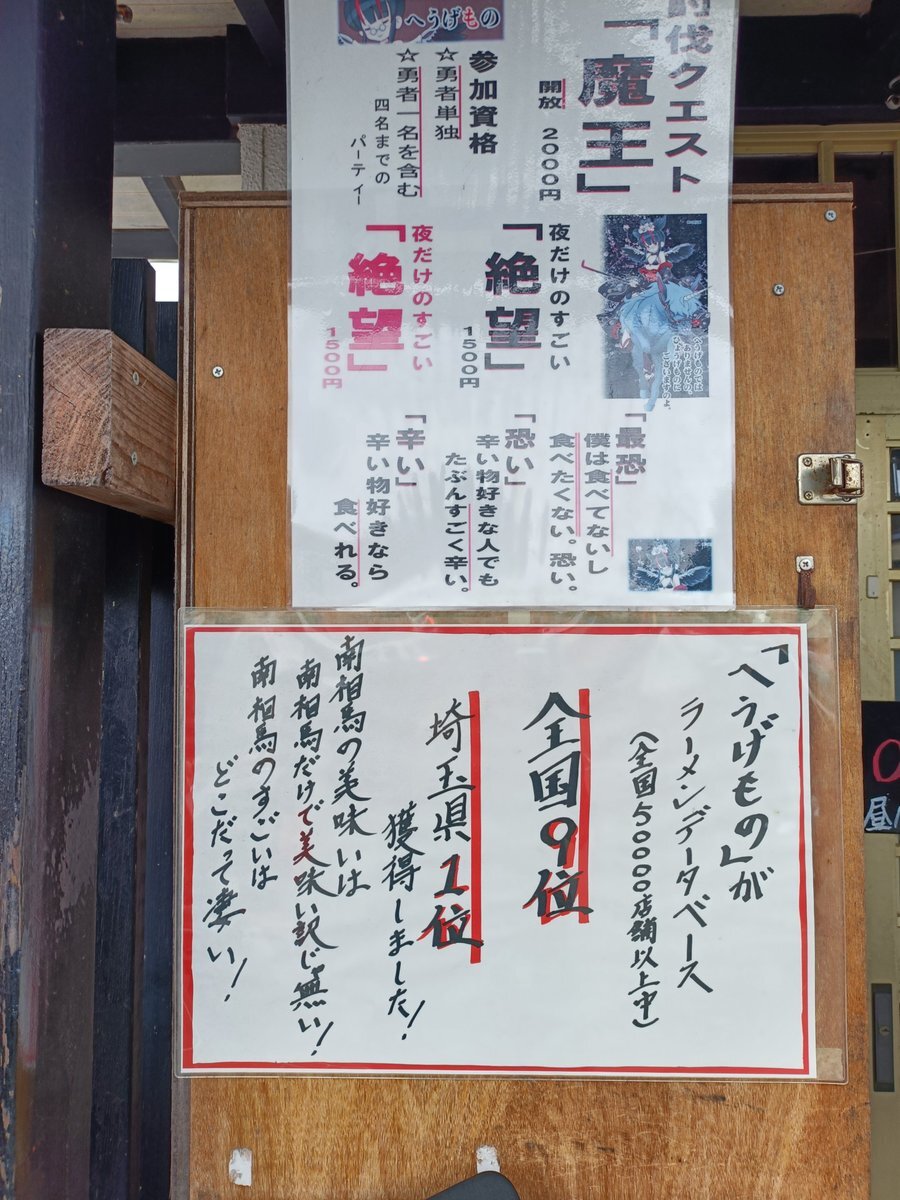 討伐クエスト
「魔王」
開放 2000円
参加資格
☆勇者単独
☆勇者一名を含む
四名までの
パーティー
へうげもの
夜だけのすごい
「絶望」
1500円
夜だけのすごい
「絶望」
1500円
へうげものでは
ありませんの。
ひょうげものに
ございますのよ。
「最恐」
僕は食べてないし
食べたくない。恐い。
「恐い」
辛い物好きな人でも
たぶんすごく辛い。
「辛い」
辛い物好きなら
食べれる。
「へうげもの」が
ラーメンデータベース
(全国50000店舗以上中)
全国9位
埼玉県1位
獲得しました!
南相馬の美味いは
南相馬だけで美味い訳じ無い!
南相馬のすごいは
どこだって凄い!
昼